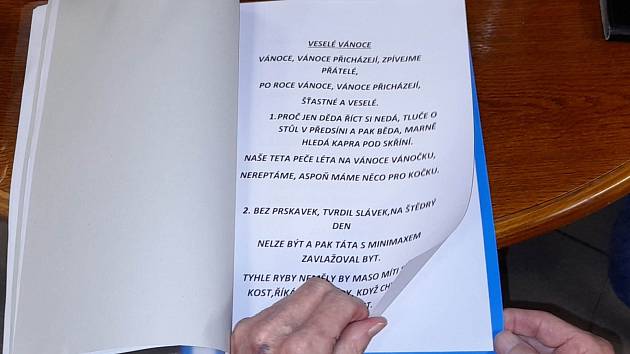 VESELÉ VÁNOCE
VÁNOCE, VÁNOCE PŘICHÁZEJÍ, ZPÍVEJME
PŘÁTELÉ,
PO ROCE VÁNOCE, VÁNOCE PŘICHÁZEJÍ,
ŠŤASTNÉ A VESELÉ.
1.PROČ JEN DĚDA ŘÍCT SI NEDÁ, TLUČE O
STŮL V PŘEDSÍNI A PAK BĚDA, MARNĚ
HLEDÁ KAPRA POD SKŘÍNÍ.
NAŠE TETA PEČE LÉTA NA VÁNOCE VÁNOČKU,
NEREPTÁME, ASPOŇ MÁME NĚCO PRO KOČKU.
2. BEZ PRSKAVEK, TVRDIL SLÁVEK,NA ŠTĚDRÝ
DEN
NELZE BÝT A PAK TÁTA S MINIMAXEM
ZAVLAŽOVAL BYT.
TYHLE RYBY NEMĚLY BY MASO MÍTI
KOST,ŘÍK KDYŽ